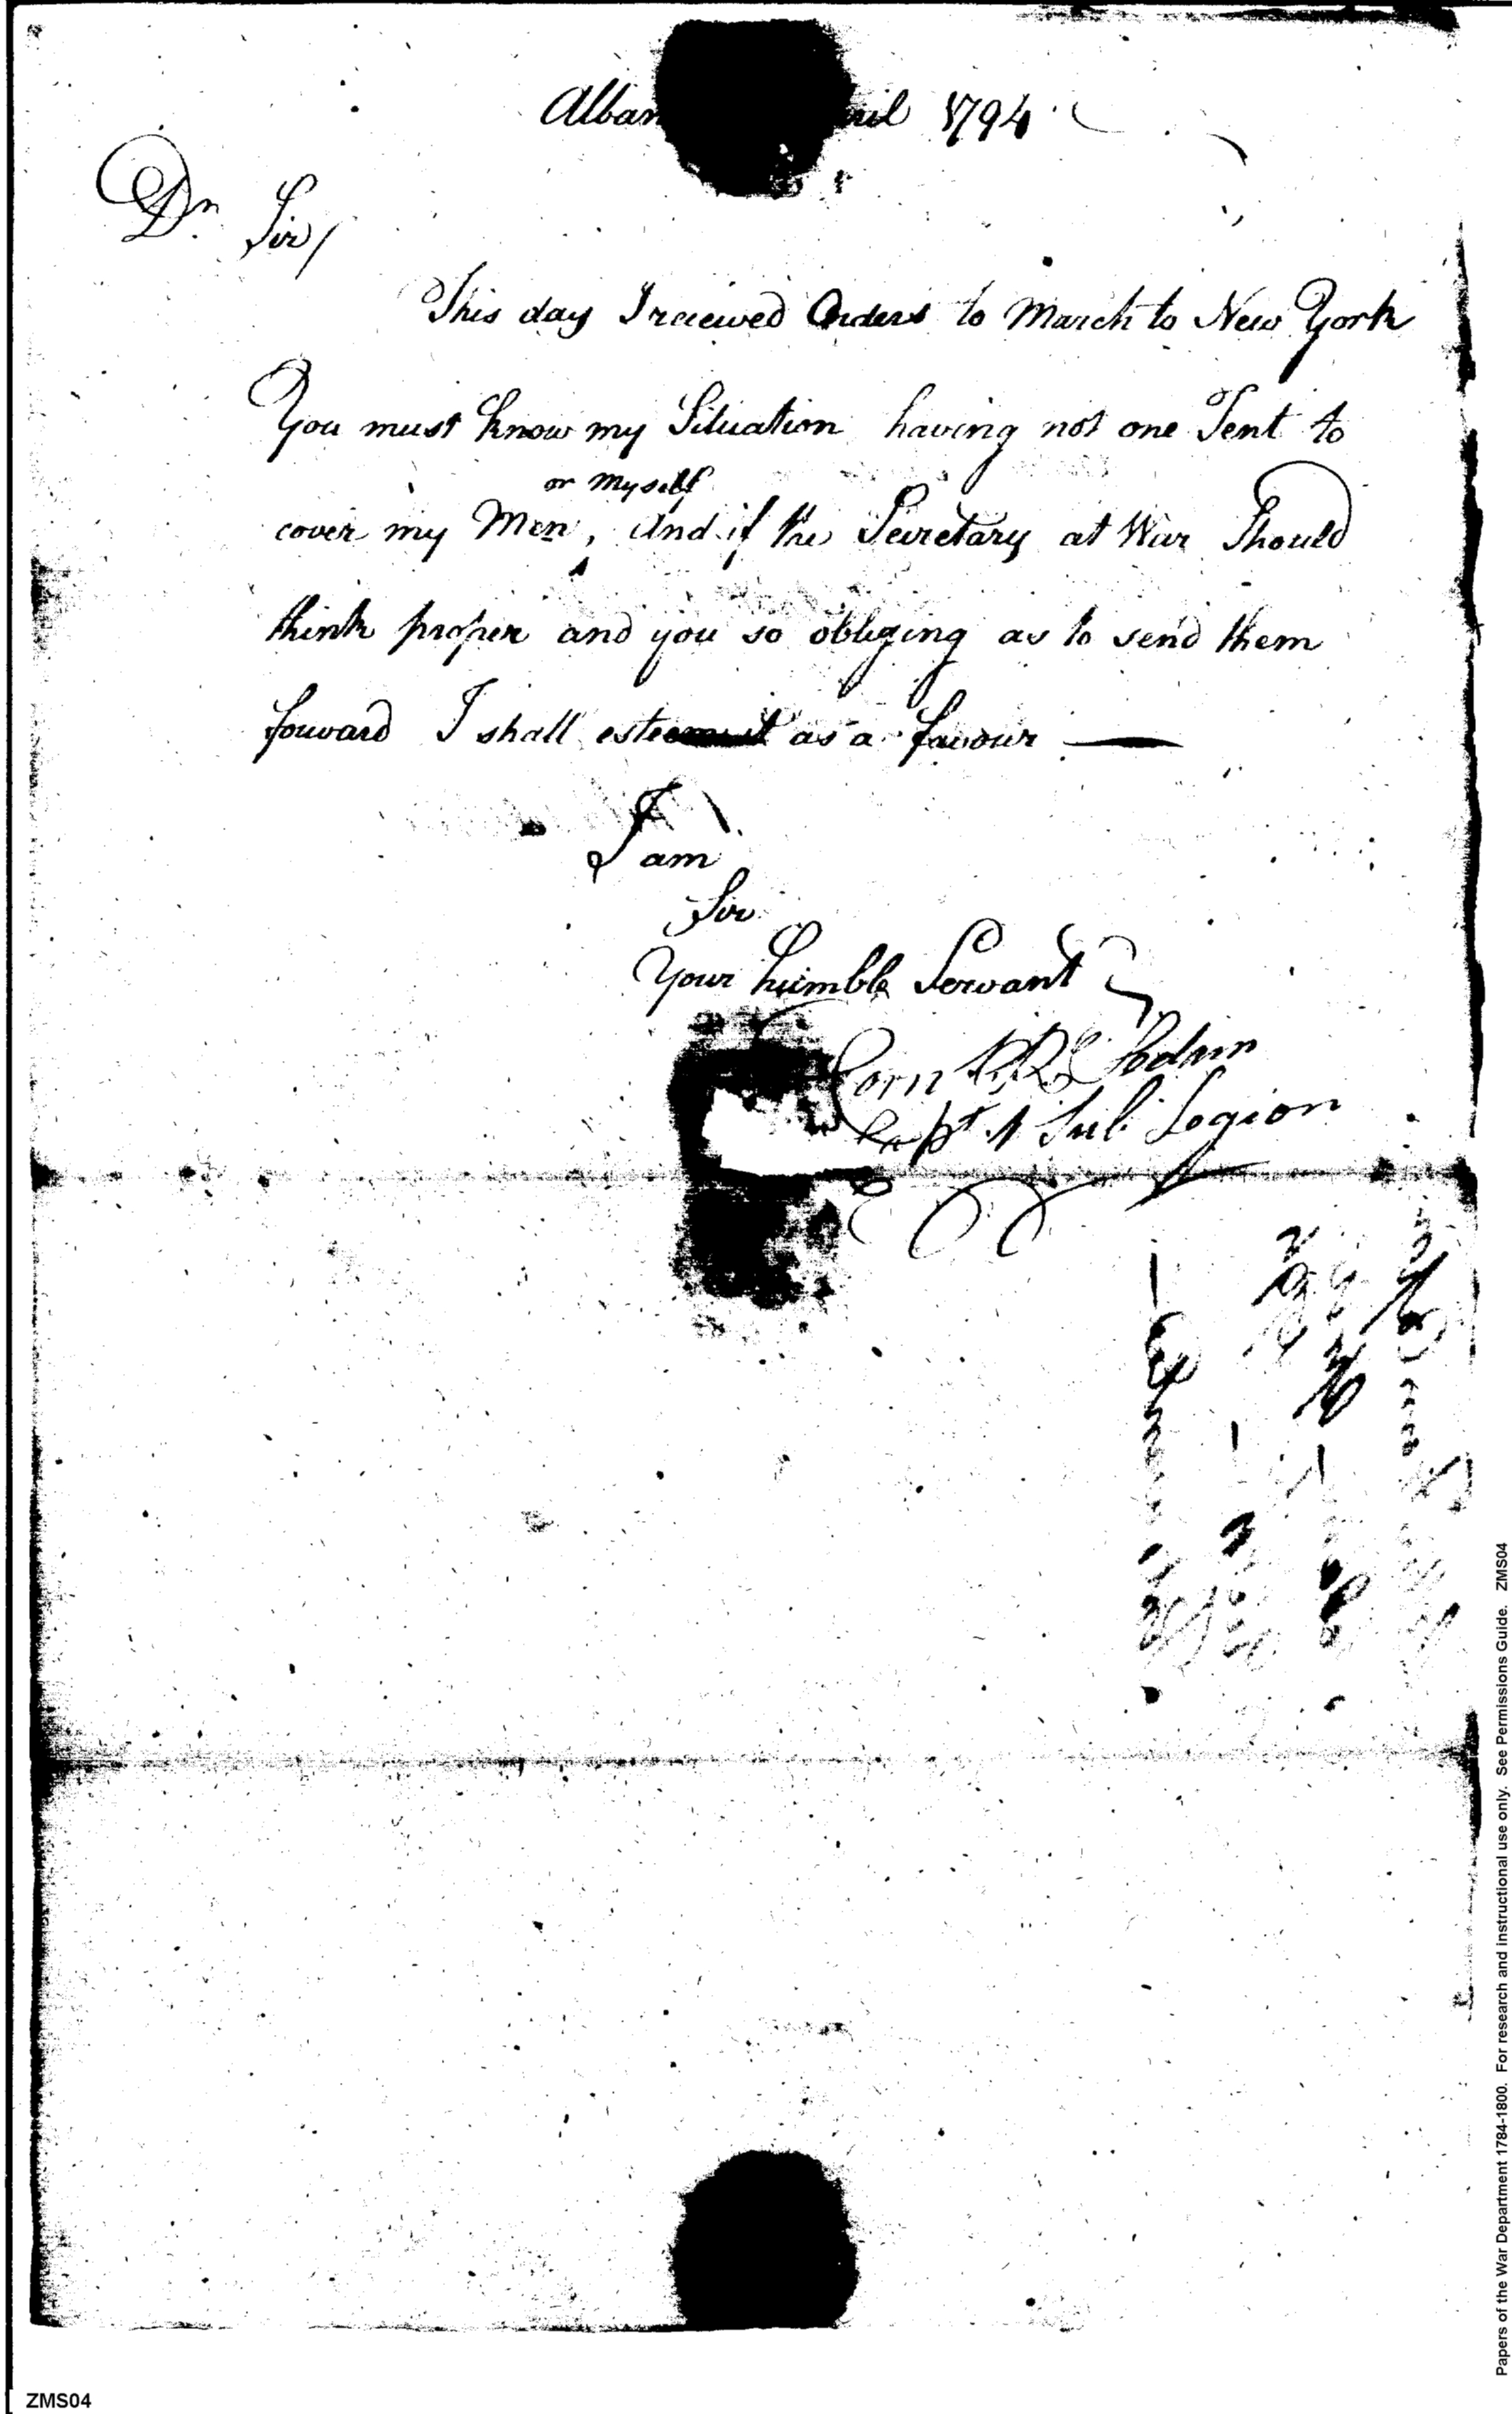 Alban ril 1794
Dr. Sir/
This day I recieved Orders to March to New York
You must know my Situation having not one Tent to
or Myself
cover my Men, And if the Secretary at War Should
think proper and you so obliging as to send them
forward I shall esteem it as a favour —
I am
Sir
Your humble Servant
Corn
Capt 1 Sub Legion
Papers of the War Department 1784-1800. For research and instructional use only. See Permissions Guide. ZMS04
ZMS04